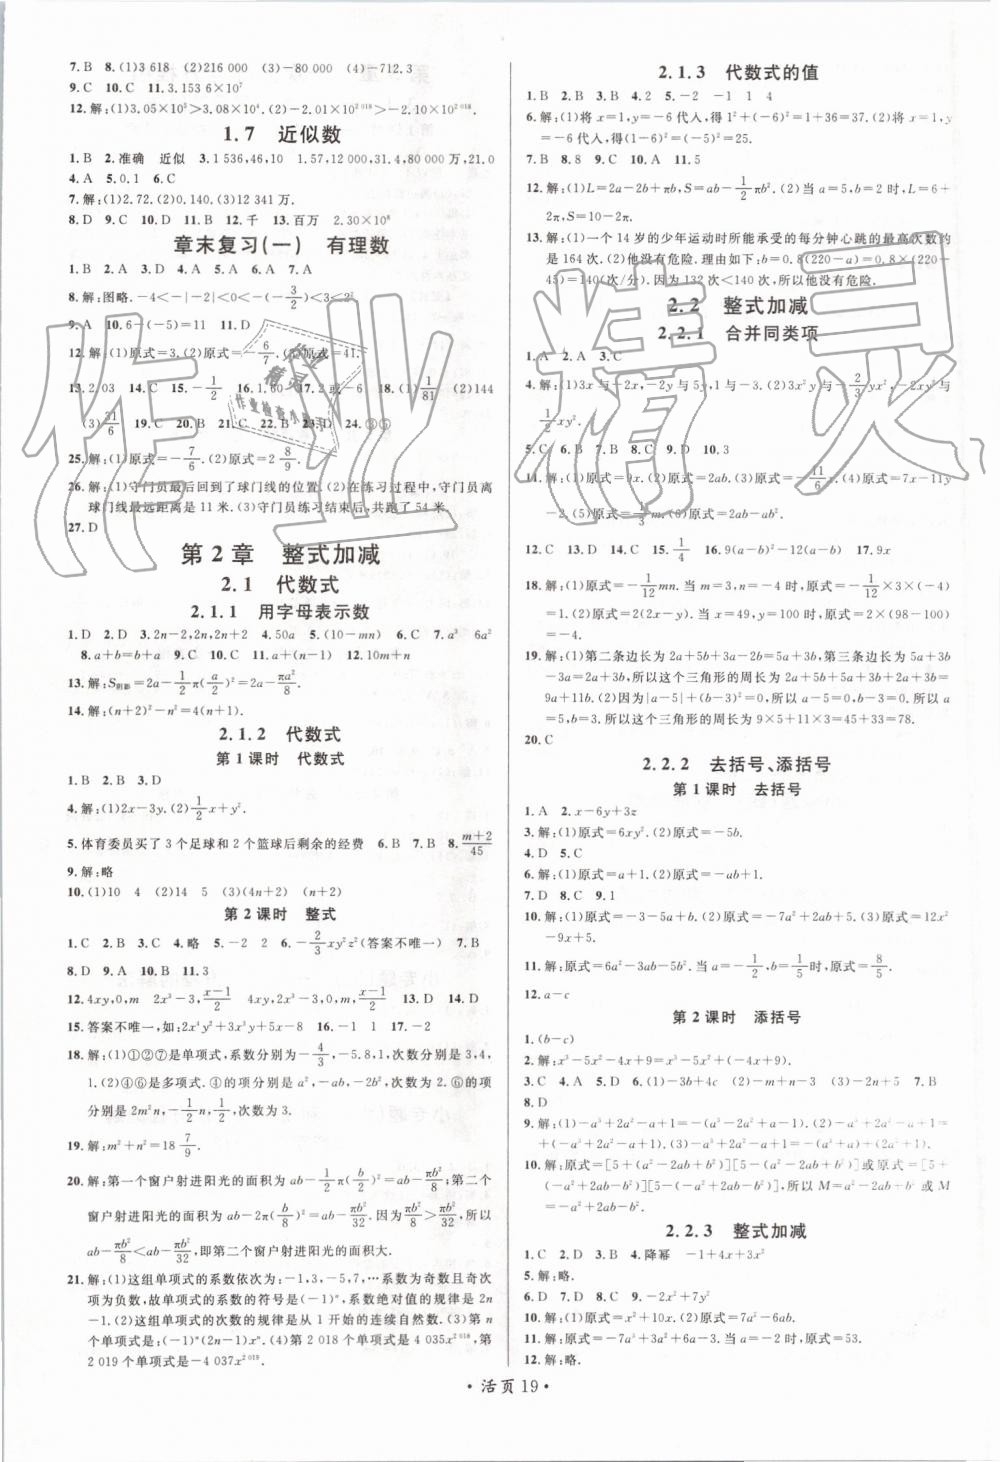 7.B 8.(1)3 618 (2)216 000 (3)-80 000 (4)-712.3
9.C 10.C 11.3.153 6×10⁷
12.解:(1)3.05×10⁵>3.08×10⁴.(2)-2.01×10²⁰¹⁸>-2.10×10²⁰¹⁸.
1.7 近似数
1.B 2.准确 近似 3.1 536,46,10 1.57,12 000,31.4,80 000 万,21.0
4.A 5.0.1 6.C
7.解:(1)2.72.(2)0.140.(3)12 341万.
8.D 9.C 10.D 11.B 12.千 13.百万 2.30×10⁸
章末复习(一) 有理数
1.B 2.A 3.D 4.A 5.A 6.A 7.A
8.解:图略.-4<-|-2|<0<-(-3/2)<3<2².
9.A 10.6-(-5)=11 11.D
12.解:(1)原式=3.(2)原式=-1/6.(3)原式=41.
13.2.03 14.C 15.-1/2 16.1.60 17.2或-6 18.(1)1/81 (2)144
(3)31/6 19.C 20.B 21.C 22.B 23.D 24.③⑤
25.解:(1)原式=-7/6.(2)原式=2 8/9.
26.解:(1)守门员最后回到了球门线的位置.(2)在练习过程中,守门员离
球门线最远距离是 11 米.(3)守门员练习结束后,共跑了 54 米.
27.D
第 2 章 整式加减
2.1 代数式
2.1.1 用字母表示数
1.D 2.D 3.2n-2,2n,2n+2 4.50a 5.(10-m) 6.C 7.a³ 6a²
8.a+b=b+a 9.C 10.C 11.a+(n-1) 12.10m+n
13.解:S阴影=2a-1/2π(a/2)²=2a-πa²/8.
14.解:(n+2)²-n²=4(n+1).
2.1.2 代数式
第 1 课时 代数式
1.B 2.B 3.D
4.解:(1)2x-3y.(2)1/2x+y².
5.体育委员买了 3 个足球和 2 个篮球后剩余的经费 6.B 7.B 8.(m+2)/45
9.解:略
10.(1)10 4 (2)14 5 (3)(4n+2) (n+2)
第 2 课时 整式
1.C 2.B 3.C 4.略 5.-2 2 6.-2/3xy²z²(答案不唯一) 7.B
8.D 9.A 10.B 11.3
12.4xy,0,m 2x³-3,(x-1)/2 4xy,2x³-3,0,m,(x-1)/2 13.D 14.D
15.答案不唯一,如:2x⁴y²+3x³y+5x-8 16.-1 1 17.-2
18.解:(1)①②⑦是单项式,系数分别是-4/3,-5.8,1,次数分别是 3,4,
1.(2)④⑥是多项式.④的项分别是 a²,-ab,-2b²,次数为 2.⑥的项
分别是 2m²n,-1/2n,1/2,次数为 3.
19.解:m²+n²=18 7/9.
20.解:第一个窗户射进阳光的面积为 ab-1/2π(b/2)²=ab-πb²/8;第二个
窗户射进阳光的面积为 ab-2π(b/8)²=ab-πb²/32.因为πb²/8>πb²/32,所以
ab-πb²/8<ab-πb²/32,即第二个窗户射进阳光的面积大.
21.解:(1)这组单项式的系数依次为:-1,3,-5,7,…系数为奇数且奇次
项为负数,故单项式的系数的符号是(-1)ⁿ,系数绝对值的规律是 2n
-1.(2)这组单项式的次数的规律是从 1 开始的连续自然数.(3)第 n
个单项式是:(-1)ⁿ(2n-1)xⁿ.(4)第 2 018 个单项式是 4 035x²⁰¹⁸,第
2 019 个单项式是-4 037x²⁰¹⁹.
2.1.3 代数式的值
1.B 2.B 3.B 4.2 5.-2 -1 1 4
6.解:(1)将 x=1,y=-6 代入,得 1²+(-6)²=1+36=37.(2)将 x=1,
y=-6 代入,得(1-6)²=(-5)²=25.
7.B 8.8 9.C 10.A 11.5
12.解:(1)L=2a-2b+πb,S=ab-1/2πb².(2)当 a=5,b=2 时,L=6+
2π,S=10-2π.
13.解:(1)一个 14 岁的少年运动时所能承受的每分钟心跳的最高次数约
是 164 次.(2)他没有危险.理由如下:b=0.8(220-a)=0.8×(220-
45)=140(次/分).因为 132 次<140 次,所以他没有危险.
2.2 整式加减
2.2.1 合并同类项
1.A 2.A 3.C
4.解:(1)3x与-2x,-2y与5y,1与-5.(2)3x²y与-2/3yx²,-2xy²与
1/2xy².
5.C 6.B 7.B 8.C 9.D 10.3
11.解:(1)原式=9x.(2)原式=2ab.(3)原式=-11/6x.(4)原式=7y
-2.(5)原式=1/3m.(6)原式=2ab-ab².
12.D 13.C 14.C 15.1/4 16.9(a-b)²-2(a-b) 17.9x
18.解:(1)原式=-1/12mn.当 m=3,n=-4 时,原式=-1/12×3×(-4)
=1.(2)原式=2(2x-y).当 x=49,y=100 时,原式=2×(98-100)
=-4.
19.解:(1)第二条边长为 2a+5b+3a-2b=5a+3b,第三条边长为 5a+3b
-3a=2a+3b,所以这个三角形的周长为 2a+5b+5a+3b+2a+3b=
9a+11b.(2)因为|a-5|+(b-3)²=0,所以 a-5=0,b-3=0.所以 a
=5,b=3,所以这个三角形的周长为 9×5+11×3=45+33=78.
20.C
2.2.2 去括号、添括号
第 1 课时 去括号
1.A 2.x-6y+3z
3.解:(1)原式=6xy².(2)原式=-5b.
4.D 5.C
6.解:(1)原式=a²b.(2)原式=-ab+1.
7.D 8.C 9.1
10.解:(1)原式=-3-5a+b.(2)原式=-7a²+2ab.(3)原式=12x²
-9x+5.
11.解:原式=6a²-ab-5b².当 a=-1/2,b=1/2时,原式=-8/5.
12.a-c
第 2 课时 添括号
1.(b-c)
2.解:x³-5x²-4x+9=x³-5x²-(4x-9).
3.C 4.A 5.D 6.(1)-3b+4c (2)-3 (3)-2n+5 7.B
8.D
9.解:(1)-a³+2a²-a+1=-(a³-2a²+a-1).(2)-a³+2a²-a+1=
+(-a³+2a²-a+1).(3)-a³+2a²-a+1=(-a+1)+(2a²-a³).
10.解:原式=[5+(a²-2ab+b²)][5-(a²-2ab+b²)]或原式=[5+
(-a²+2ab-b²)][5-(-a²+2ab-b²)],所以 M=a²-2ab+b²或M
=-a²+2ab-b².
2.2.3 整式加减
1.C 2.D 3.B 4.降幂 -1+4x+3x²
5.解:略.
6.D 7.D 8.C 9.-2x²+7y²
10.解:(1)原式=x²+10x.(2)原式=7a²-6ab.
11.解:原式=-7a³+3a²-4a-7.当 a=-2 时,原式=53.
12.解:略.
· 活页 19 ·
作业精灵
作业检查小助手